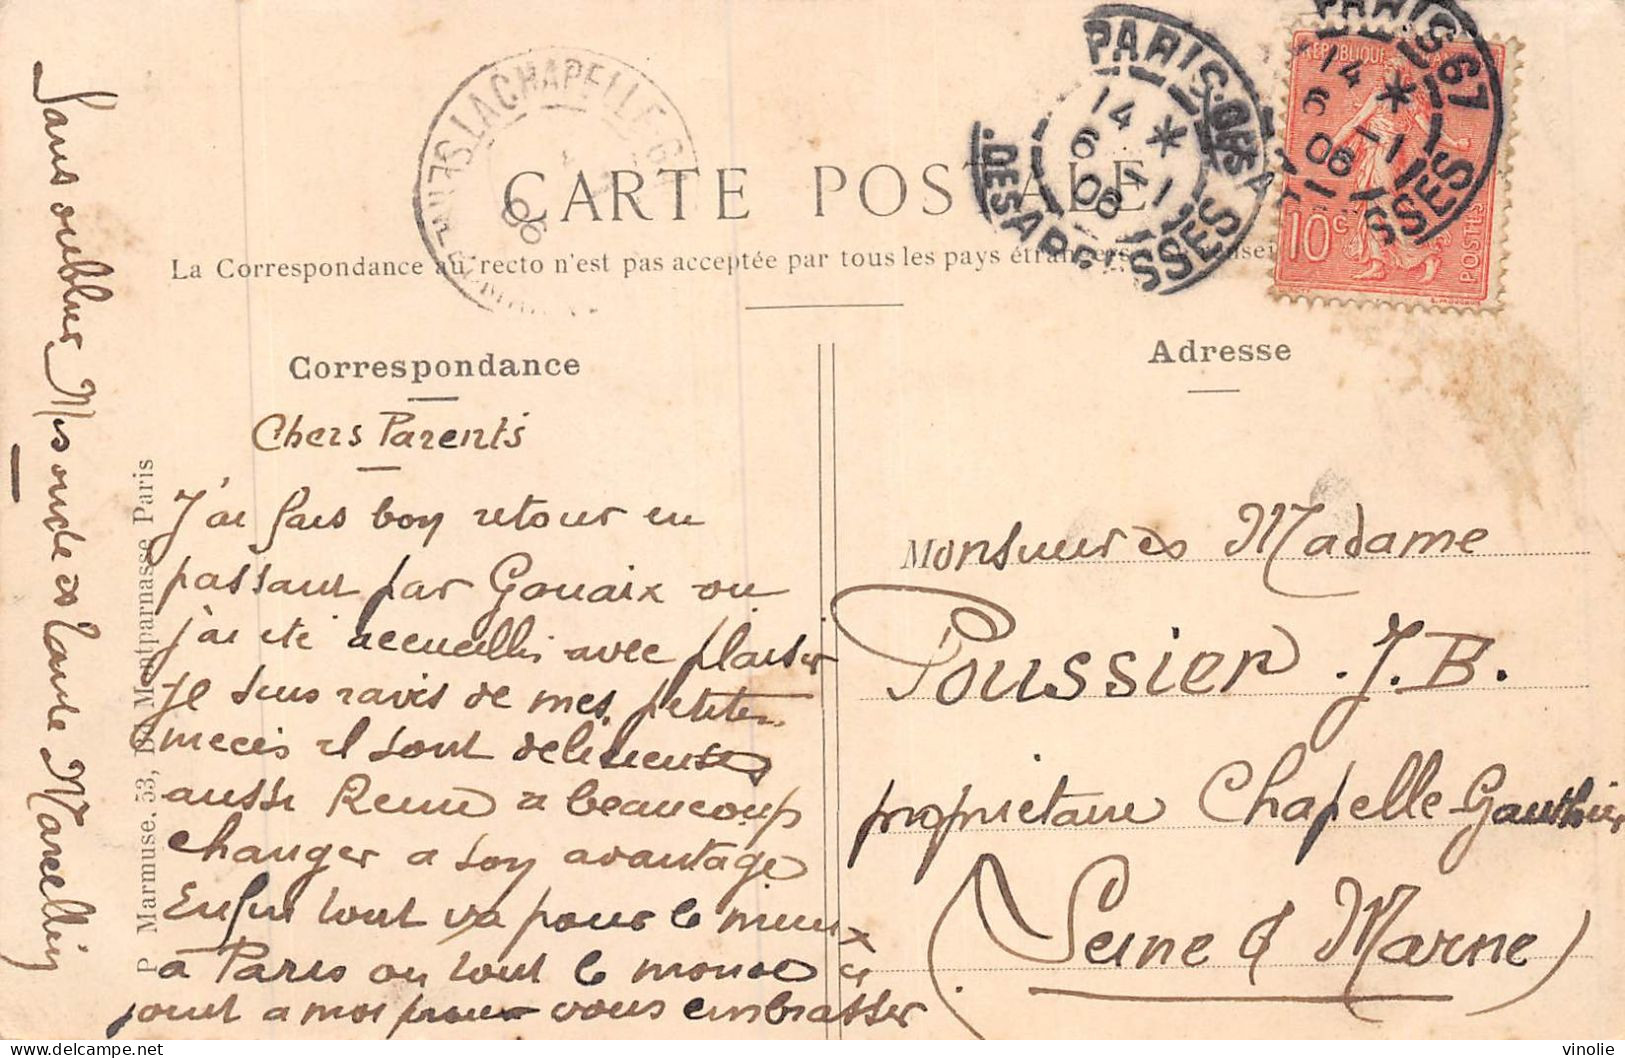 CARTE POSTALE
La Correspondance au recto n'est pas acceptée par tous les pays étrangers
PARIS.67
14 *
6 -1
06
DES ABBESSES
PARIS.67
14 *
6 -1
06
SSES
LA CHAPELLE-G
06
RÉPUBLIQUE FRANÇAISE
10c
POSTES
Correspondance
Adresse
Chers Parents
J'ai fais bon retour en
passant par Gouaix ou
j'ai eté accueilli avec plaisir
Je suis ravis de mes petites
nieces il sont delicieuses
aussi René a beaucoup
changer a son avantage
Enfin tout va pour le mieux
a Paris ou tout le monde ce
joint a moi pour vous embrasser
Sans oublier Mes oncle et tante Marcellin
P. Marmuse, 53, Bd Montparnasse Paris
Monsieur et Madame
Poussier. J. B.
propriétaire Chapelle-Gauthier
(Seine & Marne)
delcampe.net
vinolie